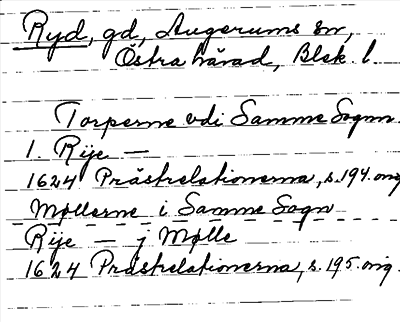 Ryd, gd, Augerums sn,
Östra härad, Blek. l.
Torperne vdi Samme Sogn.
1. Rije —
1624 Prästrelationerna, s. 194. orig
Møllerne i Samme Sogn
Rije — j Mølle
1624 Prästrelationerna, s. 195. orig.